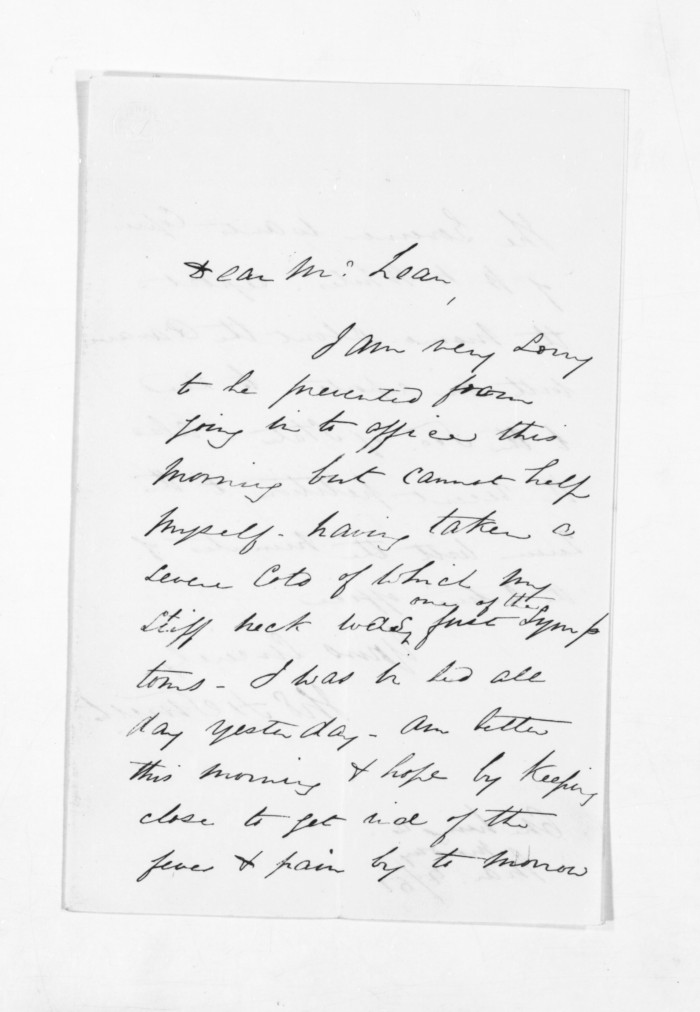 Dear Mc Lean,
I am very sorry
to be prevented from
going in to office this
morning but cannot help
myself - having taken a
severe Cold of which my
one of the
stiff neck was first symp
toms - I was in bed all
day yesterday - am better
this morning & hope by keeping
close to get rid of the
fever & pain by to morrow